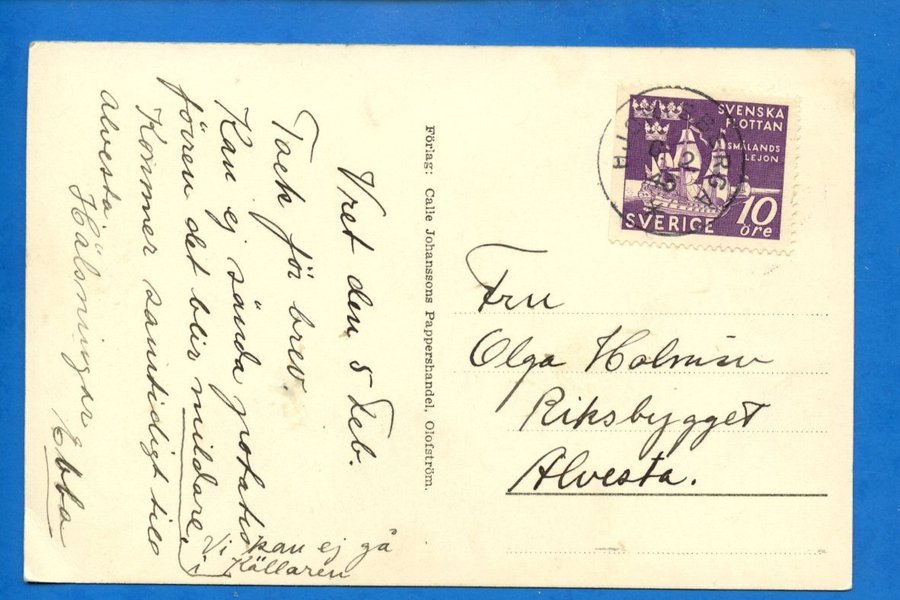 Vret den 5 Feb.
Tack för brev.
Kan ej sända potatis
fören det blir mildare.
Vi kan ej gå
i Källaren
Kommer samtidigt till
Alvesta.
Hälsningar Ebba
Förlag: Calle Johanssons Pappershandel, Olofström.
SVENSKA
FLOTTAN
SMÅLANDS
LEJON
10
öre
SVERIGE
Fru
Olga Holmén
Riksbygget
Alvesta.